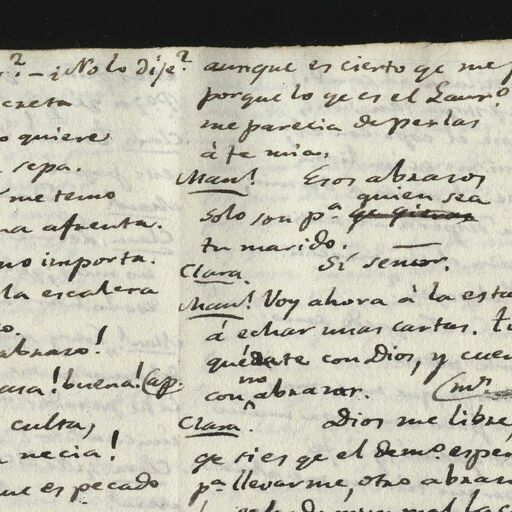 ? – ¿No lo dije?
creta
o quiere
sepa.
me temo
na afrenta.
no importa.
la escalera
o.
abrazo!
casa! buena! (ap.
culta,
necia!
que es pecado
aunque es cierto qe me
porque lo qe es el Laur.o
me parecia de perlas
á fe mia.
Man.l Esos abrazos
solo son p.a quien sea
tu marido.
Clara. Sí señor.
Man.l Voy ahora á la esta
á echar unas cartas. Tu
quédate con Dios, y cuen
con no abrazar. (ms
Clara. Dios me libre,
qe si es qe el demo. esper
p.a llevarme, otro abraz